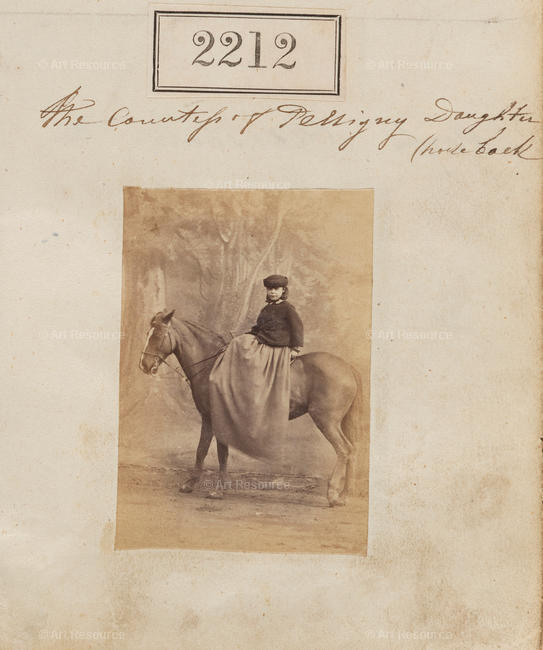 2212
The Countess of Persigny Daughter
(horse back
© Art Resource
© Art Resource
© Art Resource
© Art Resource
© Art Resource
© Art Resource
© Art Resource
© Art Resource